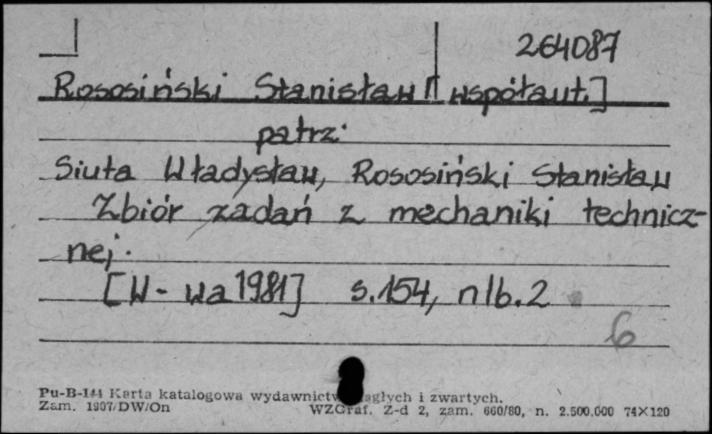 264087
Rososiński Stanisław [współaut.]
patrz:
Siuta Władysław, Rososiński Stanisław
Zbiór zadań z mechaniki technicz-
nej.
[W-wa 1981] s.154, nlb.2
6
Pu-B-144 Karta katalogowa wydawnictw ciągłych i zwartych.
Zam. 1907/DW/On WZGraf. Z-d 2, zam. 660/80, n. 2.500.000 74×120